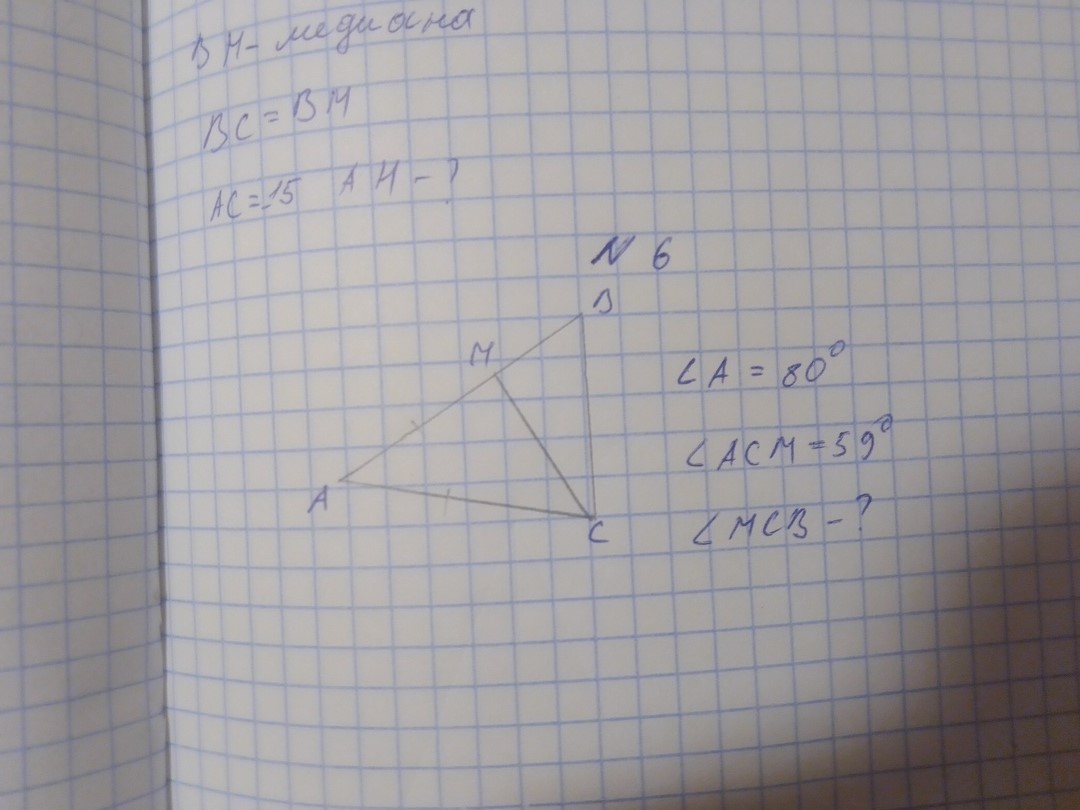 BM - медиана
BC = BM
AC = 15 AH - ?
N 6
B
M
∠A = 80°
∠ACM = 59°
A
C
∠MCB - ?